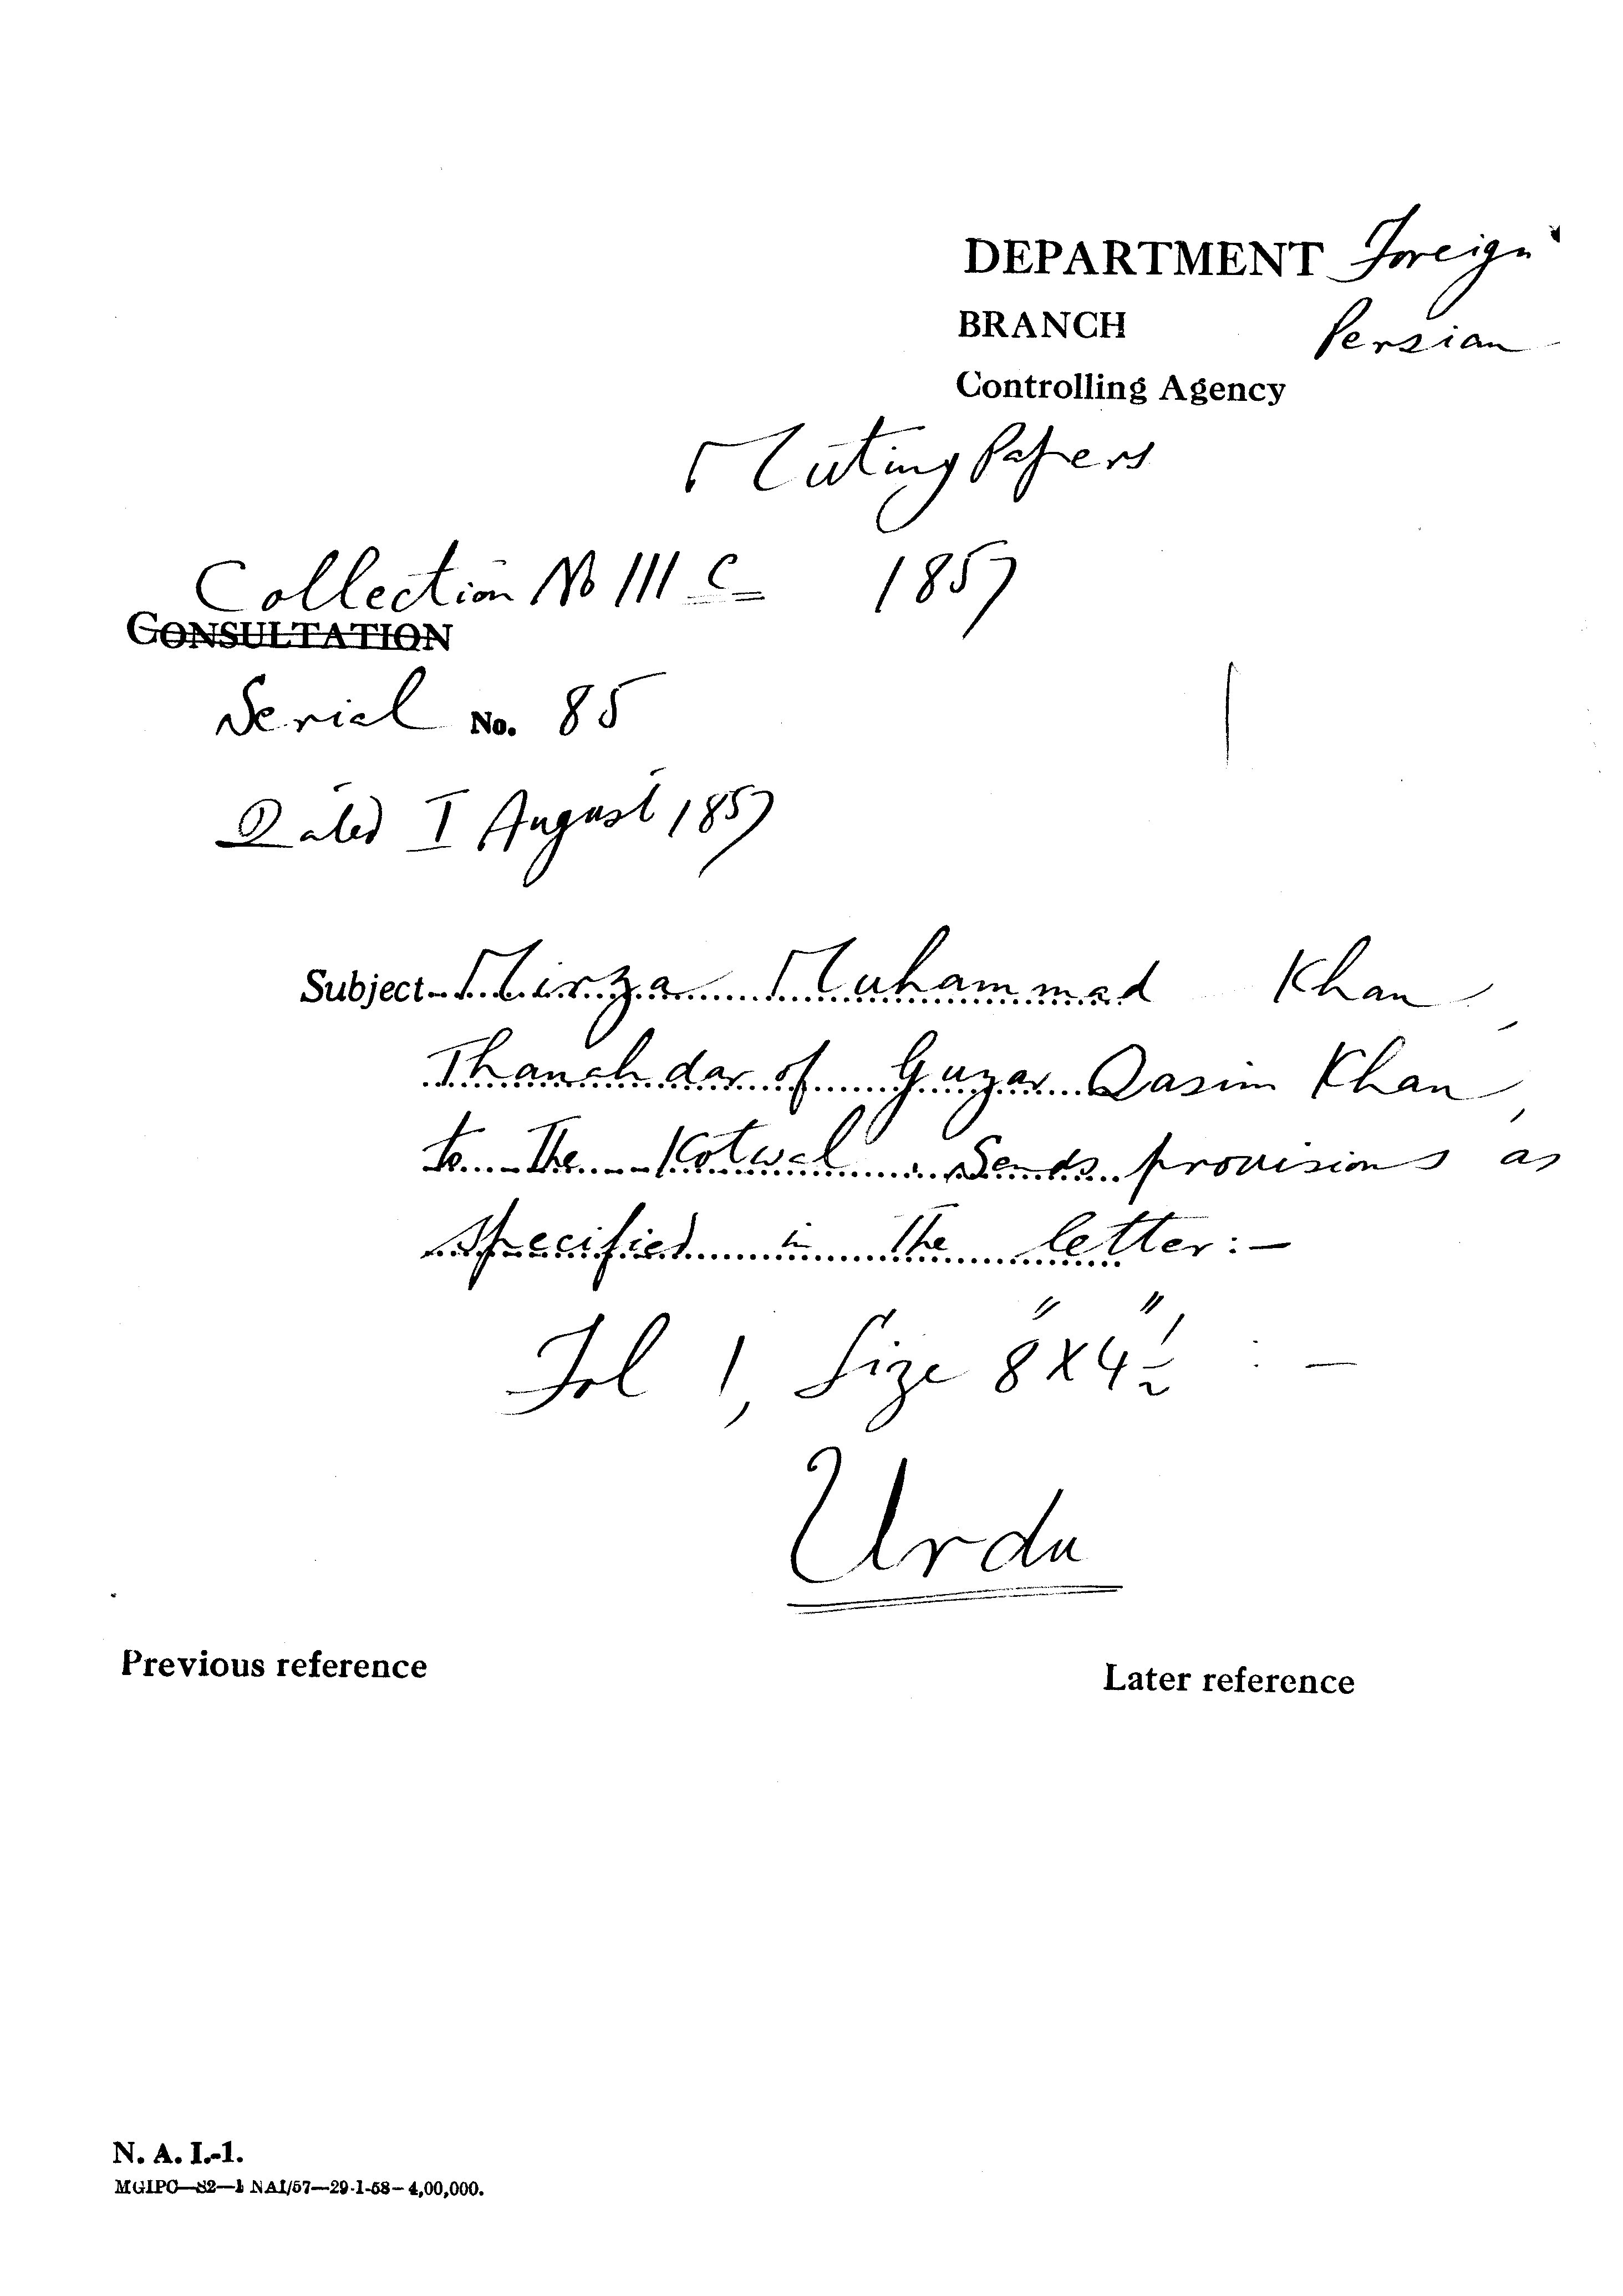 DEPARTMENT Foreign
BRANCH Persian
Controlling Agency
Mutiny Papers
Collection No III C 1857
CONSULTATION
Serial No. 85
Dated I August 1857
Subject Mirza Muhammad Khan,
Thanahdar of Guzar Qasim Khan,
to the Kotwal. Sends provisions as
specified in the letter:-
Fol 1, Size 8"X4½" :-
Urdu
Previous reference
Later reference
N. A. I.-1.
MGIPC—82—1 NAI/57—29-1-58—4,00,000.